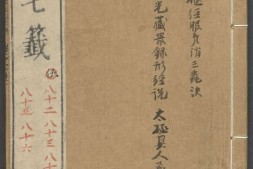 消三蟲訣
光藏景錄形經說 太極真人
七籤
八十二 八十三 八十
八十五 八十六